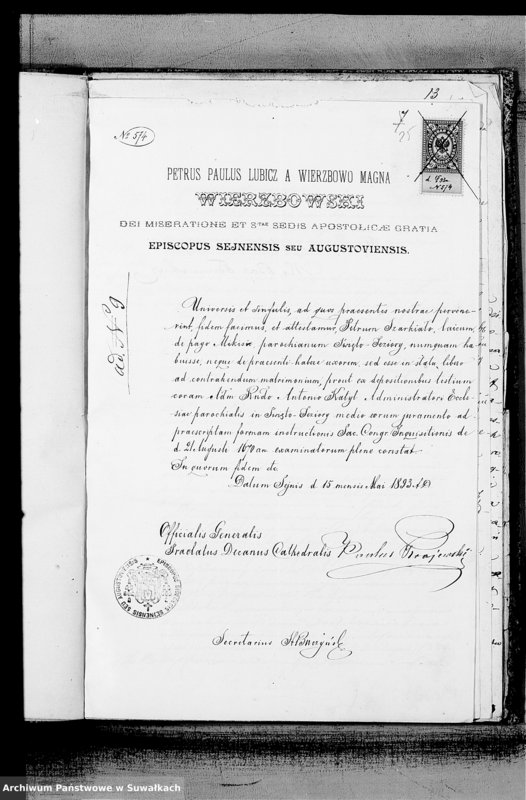 13
7
25
№ 5/4
№ 5/4
PETRUS PAULUS LUBICZ A WIERZBOWO MAGNA
WIERZBOWSKI
DEI MISERATIONE ET Sᵀᴬᴱ SEDIS APOSTOLICÆ GRATIA
EPISCOPUS SEJNENSIS SEU AUGUSTOVIENSIS.
ad. № 9
Universis et singulis, ad quos praesentes nostrae pervene-
rint, fidem facimus, et attestamur, Petrum Szarkialo, laicum,
de pago parochianum nunquam ha
buisse, neque de praesenti habere uxorem, sed esse in statu libero
ad contrahendum matrimonium, prout ex depositionibus testium
coram Adm Rndo Antonio Administratori Eccle-
siae parochialis in medio eorum juramento ad
praescriptam formam instructionis Sac. Congr. Inquisitionis de
d 21 Augusti 1670 an examinatorum plene constat.
In quorum fidem etc
Datum Sejnis d 15 mensis Mai 1893
Officialis Generalis
Praelatus Decanus Cathedralis Paulus Krajewski
EPISCOPUS SEJNENSIS SEU AUGUSTOVIENSIS
Secretarius
Archiwum Państwowe w Suwałkach